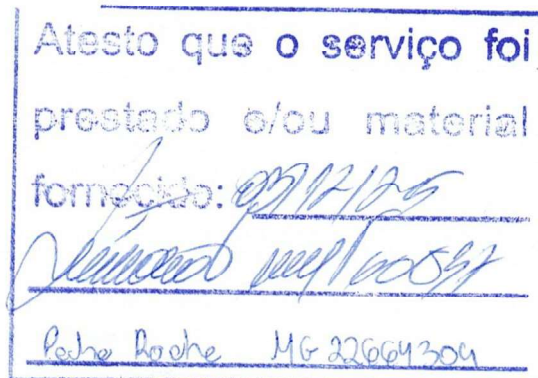 Atesto que o serviço foi
prestado e/ou material
fornecido: 03/12/25
Pedro Rocha MG 22664304